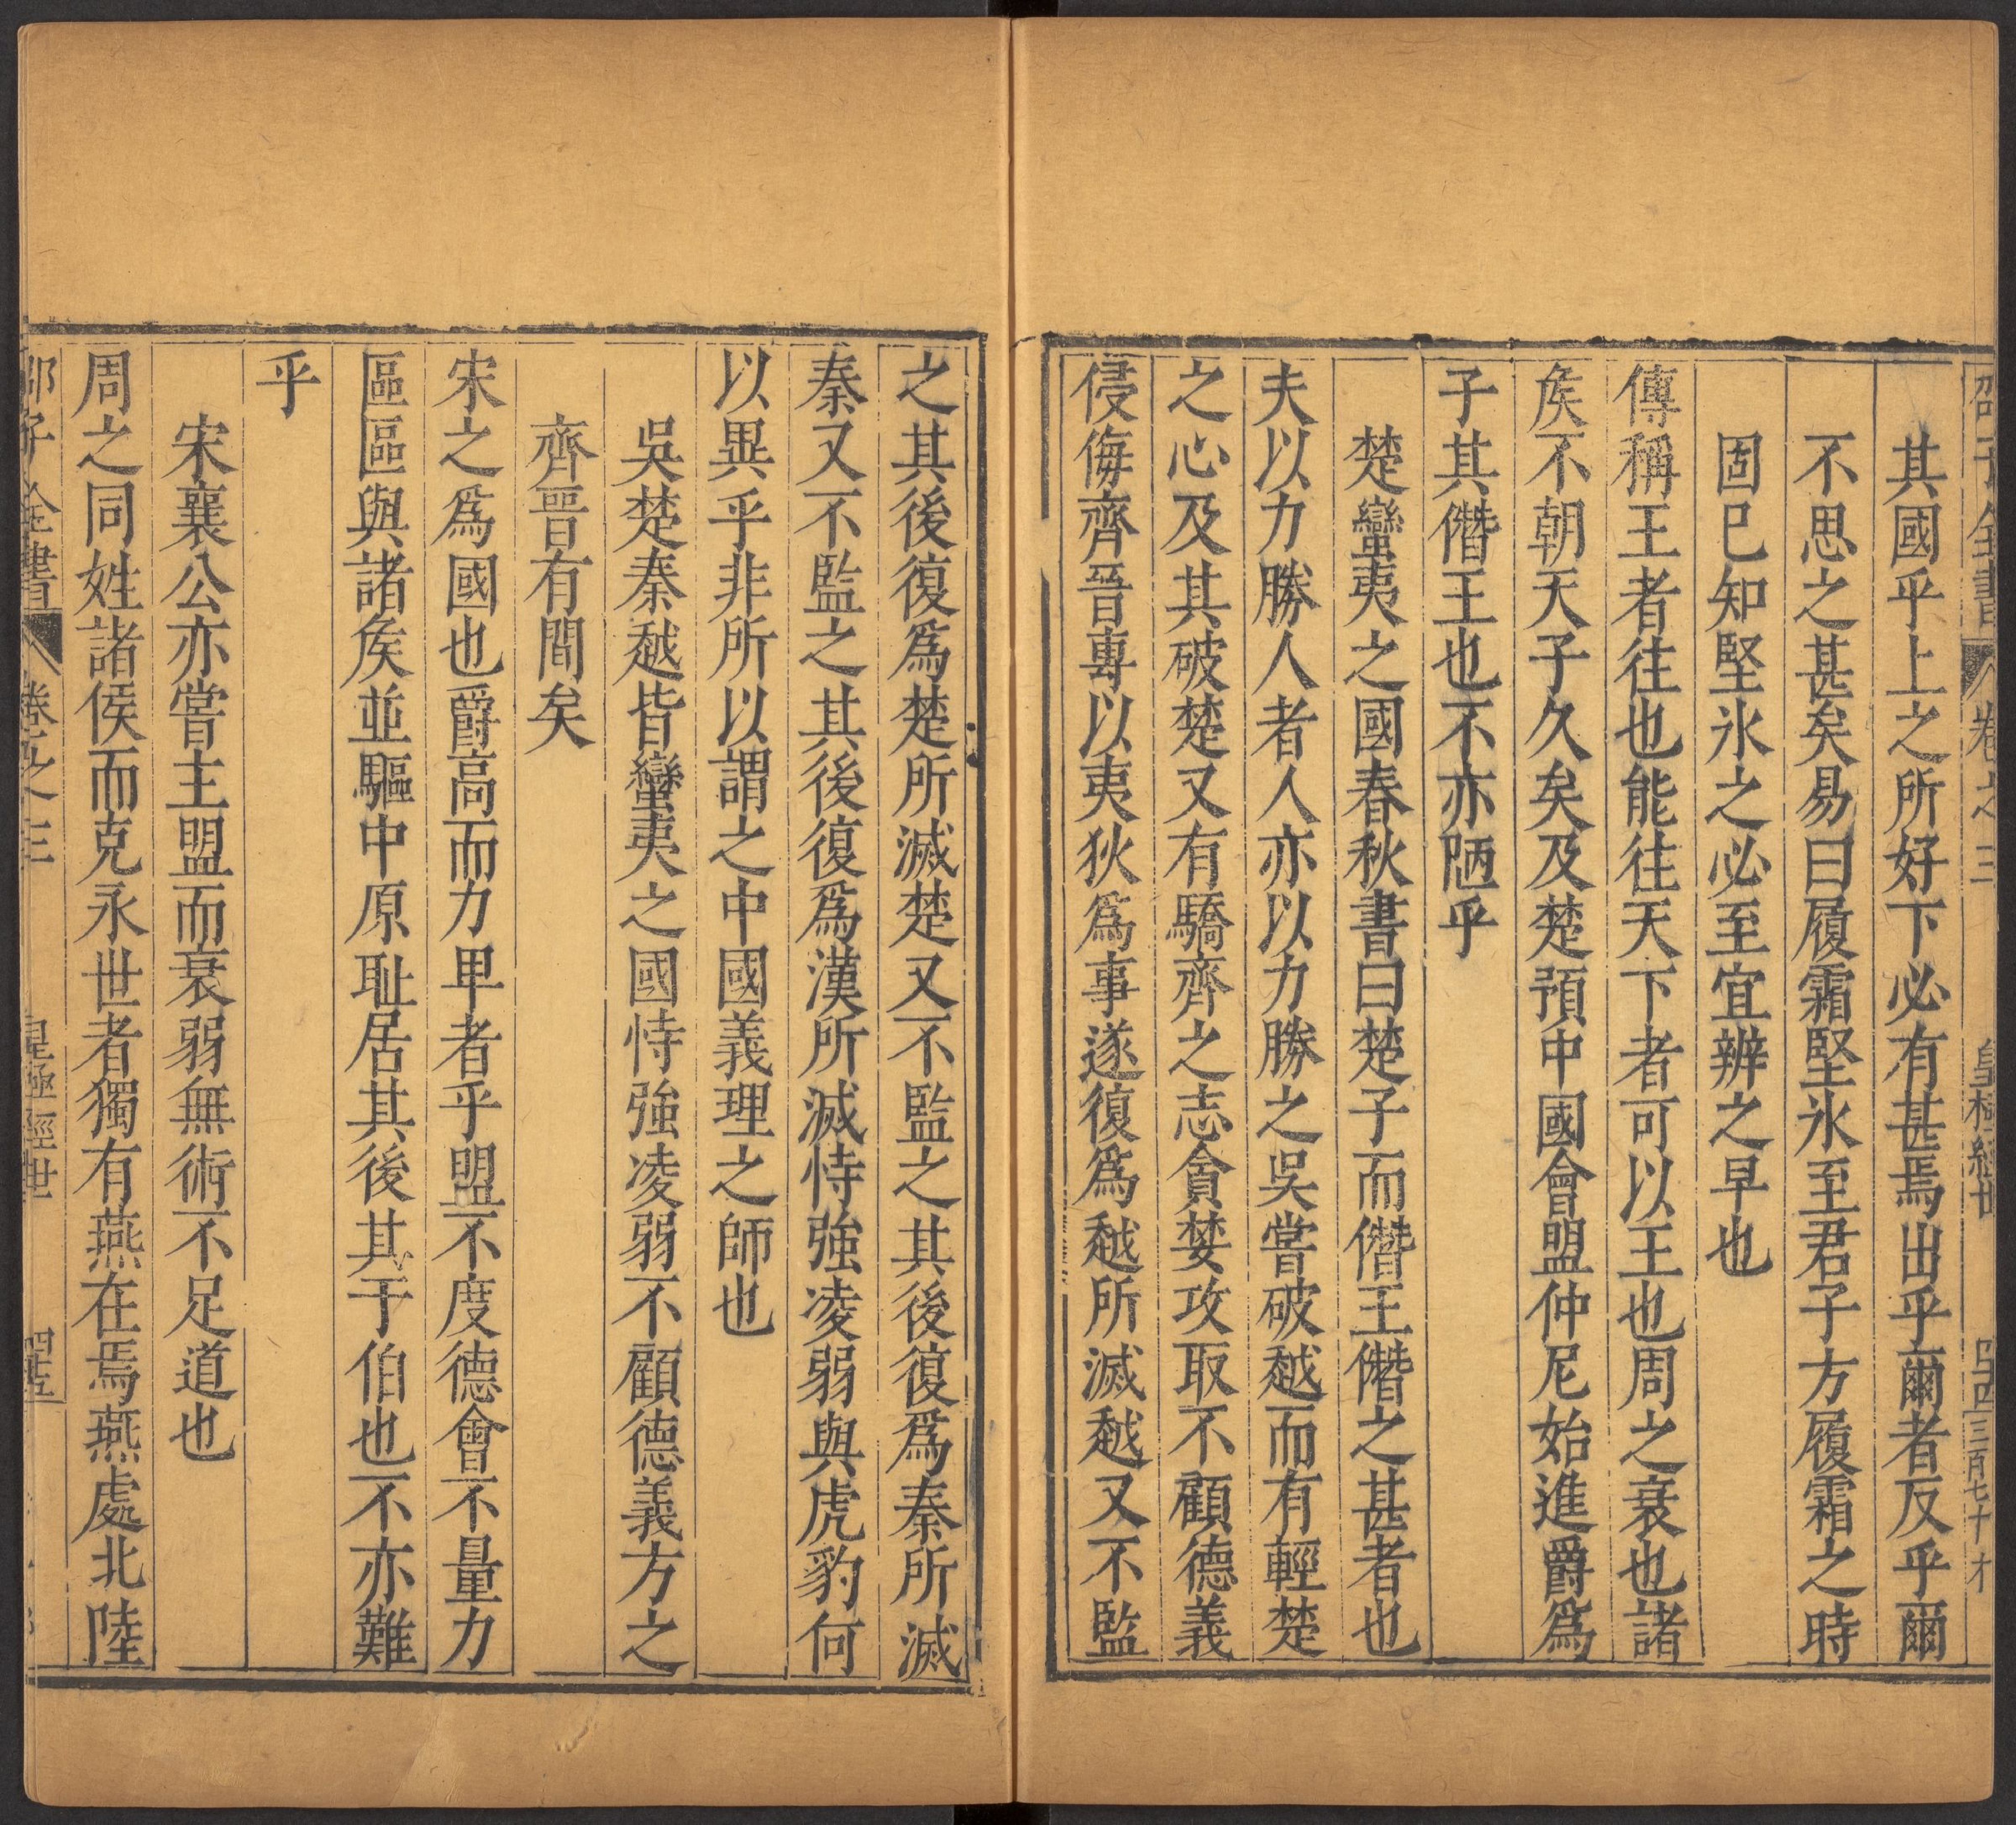 邵子全書 卷之三 皇極經世
其國乎上之所好下必有甚焉出乎爾者反乎爾
不思之甚矣易曰履霜堅氷至君子方履霜之時
固已知堅氷之必至宜辨之早也
傳稱王者往也能往天下者可以王也周之衰也諸
矦不朝天子久矣及楚預中國會盟仲尼始進爵爲
子其僭王也不亦陋乎
楚蠻夷之國春秋書曰楚子而僭王僭之甚者也
夫以力勝人者人亦以力勝之吳嘗破越而有輕楚
之心及其破楚又有驕齊之志貪婪攻取不顧德義
侵侮齊晉專以夷狄爲事遂復爲越所滅越又不監
之其後復爲楚所滅楚又不監之其後復爲秦所滅
秦又不監之其後復爲漢所滅恃強凌弱與虎豹何
以異乎非所以謂之中國義理之師也
吳楚秦越皆蠻夷之國恃強凌弱不顧德義方之
齊晉有間矣
宋之爲國也爵高而力卑者乎盟不度德會不量力
區區與諸矦並驅中原耻居其後其于伯也不亦難
乎
宋襄公亦嘗主盟而衰弱無術不足道也
周之同姓諸侯而克永世者獨有燕在焉燕處北陸
邵子全書 卷之三 皇極經世